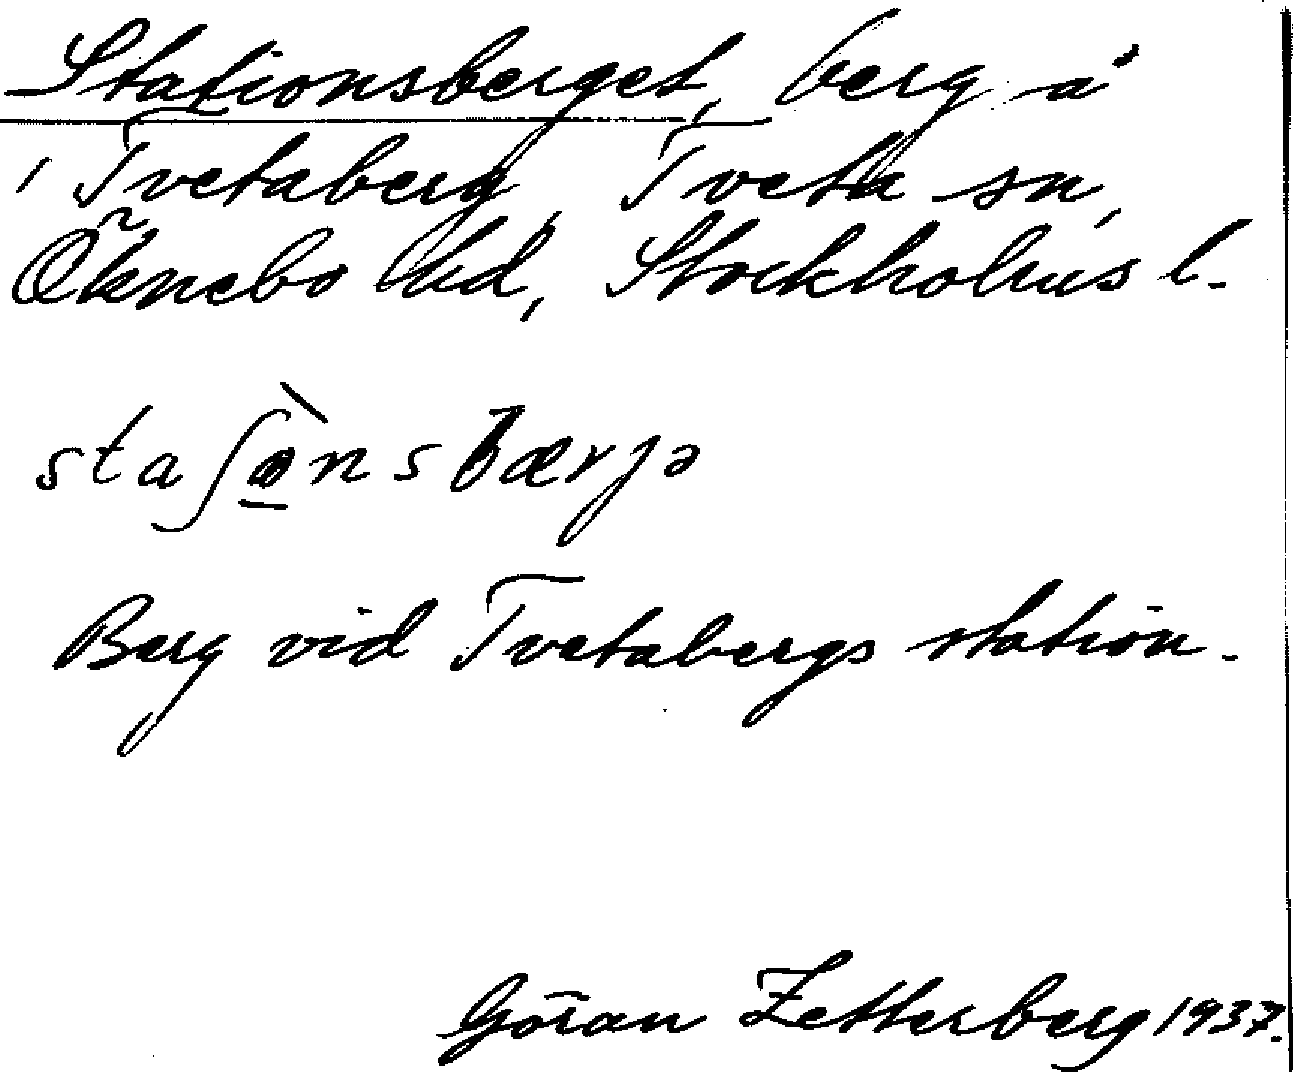 Stationsberget, berg å
i Tvetaberg, Tveta sn,
Öknebo hd, Stockholms l.
staʃò̱nsbærjə
Berg vid Tvetabergs station.
Göran Zetterberg 1937.